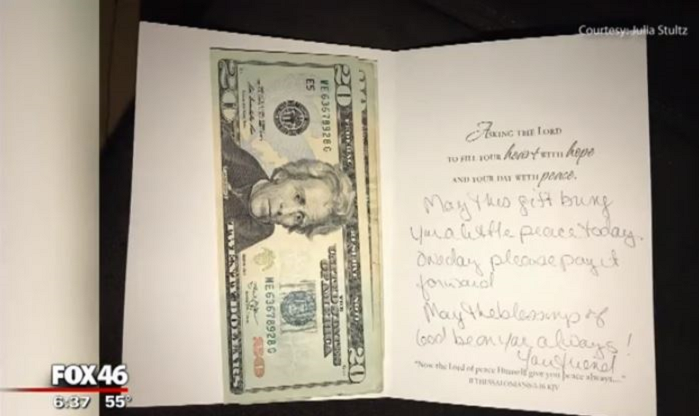 Courtesy: Julia Stultz
20
20
ME63678928G
E5
TWENTY DOLLARS
ME63678928G
20
20
ASKING THE LORD
TO FILL YOUR heart WITH hope
AND YOUR DAY WITH peace.
May this gift bring
you a little peace today.
One day please pay it
forward
May the blessings of
God be on you always!
Your friend
"Now the Lord of peace Himself give you peace always..."
II THESSALONIANS 3:16 KJV
FOX 46
6:37 55°